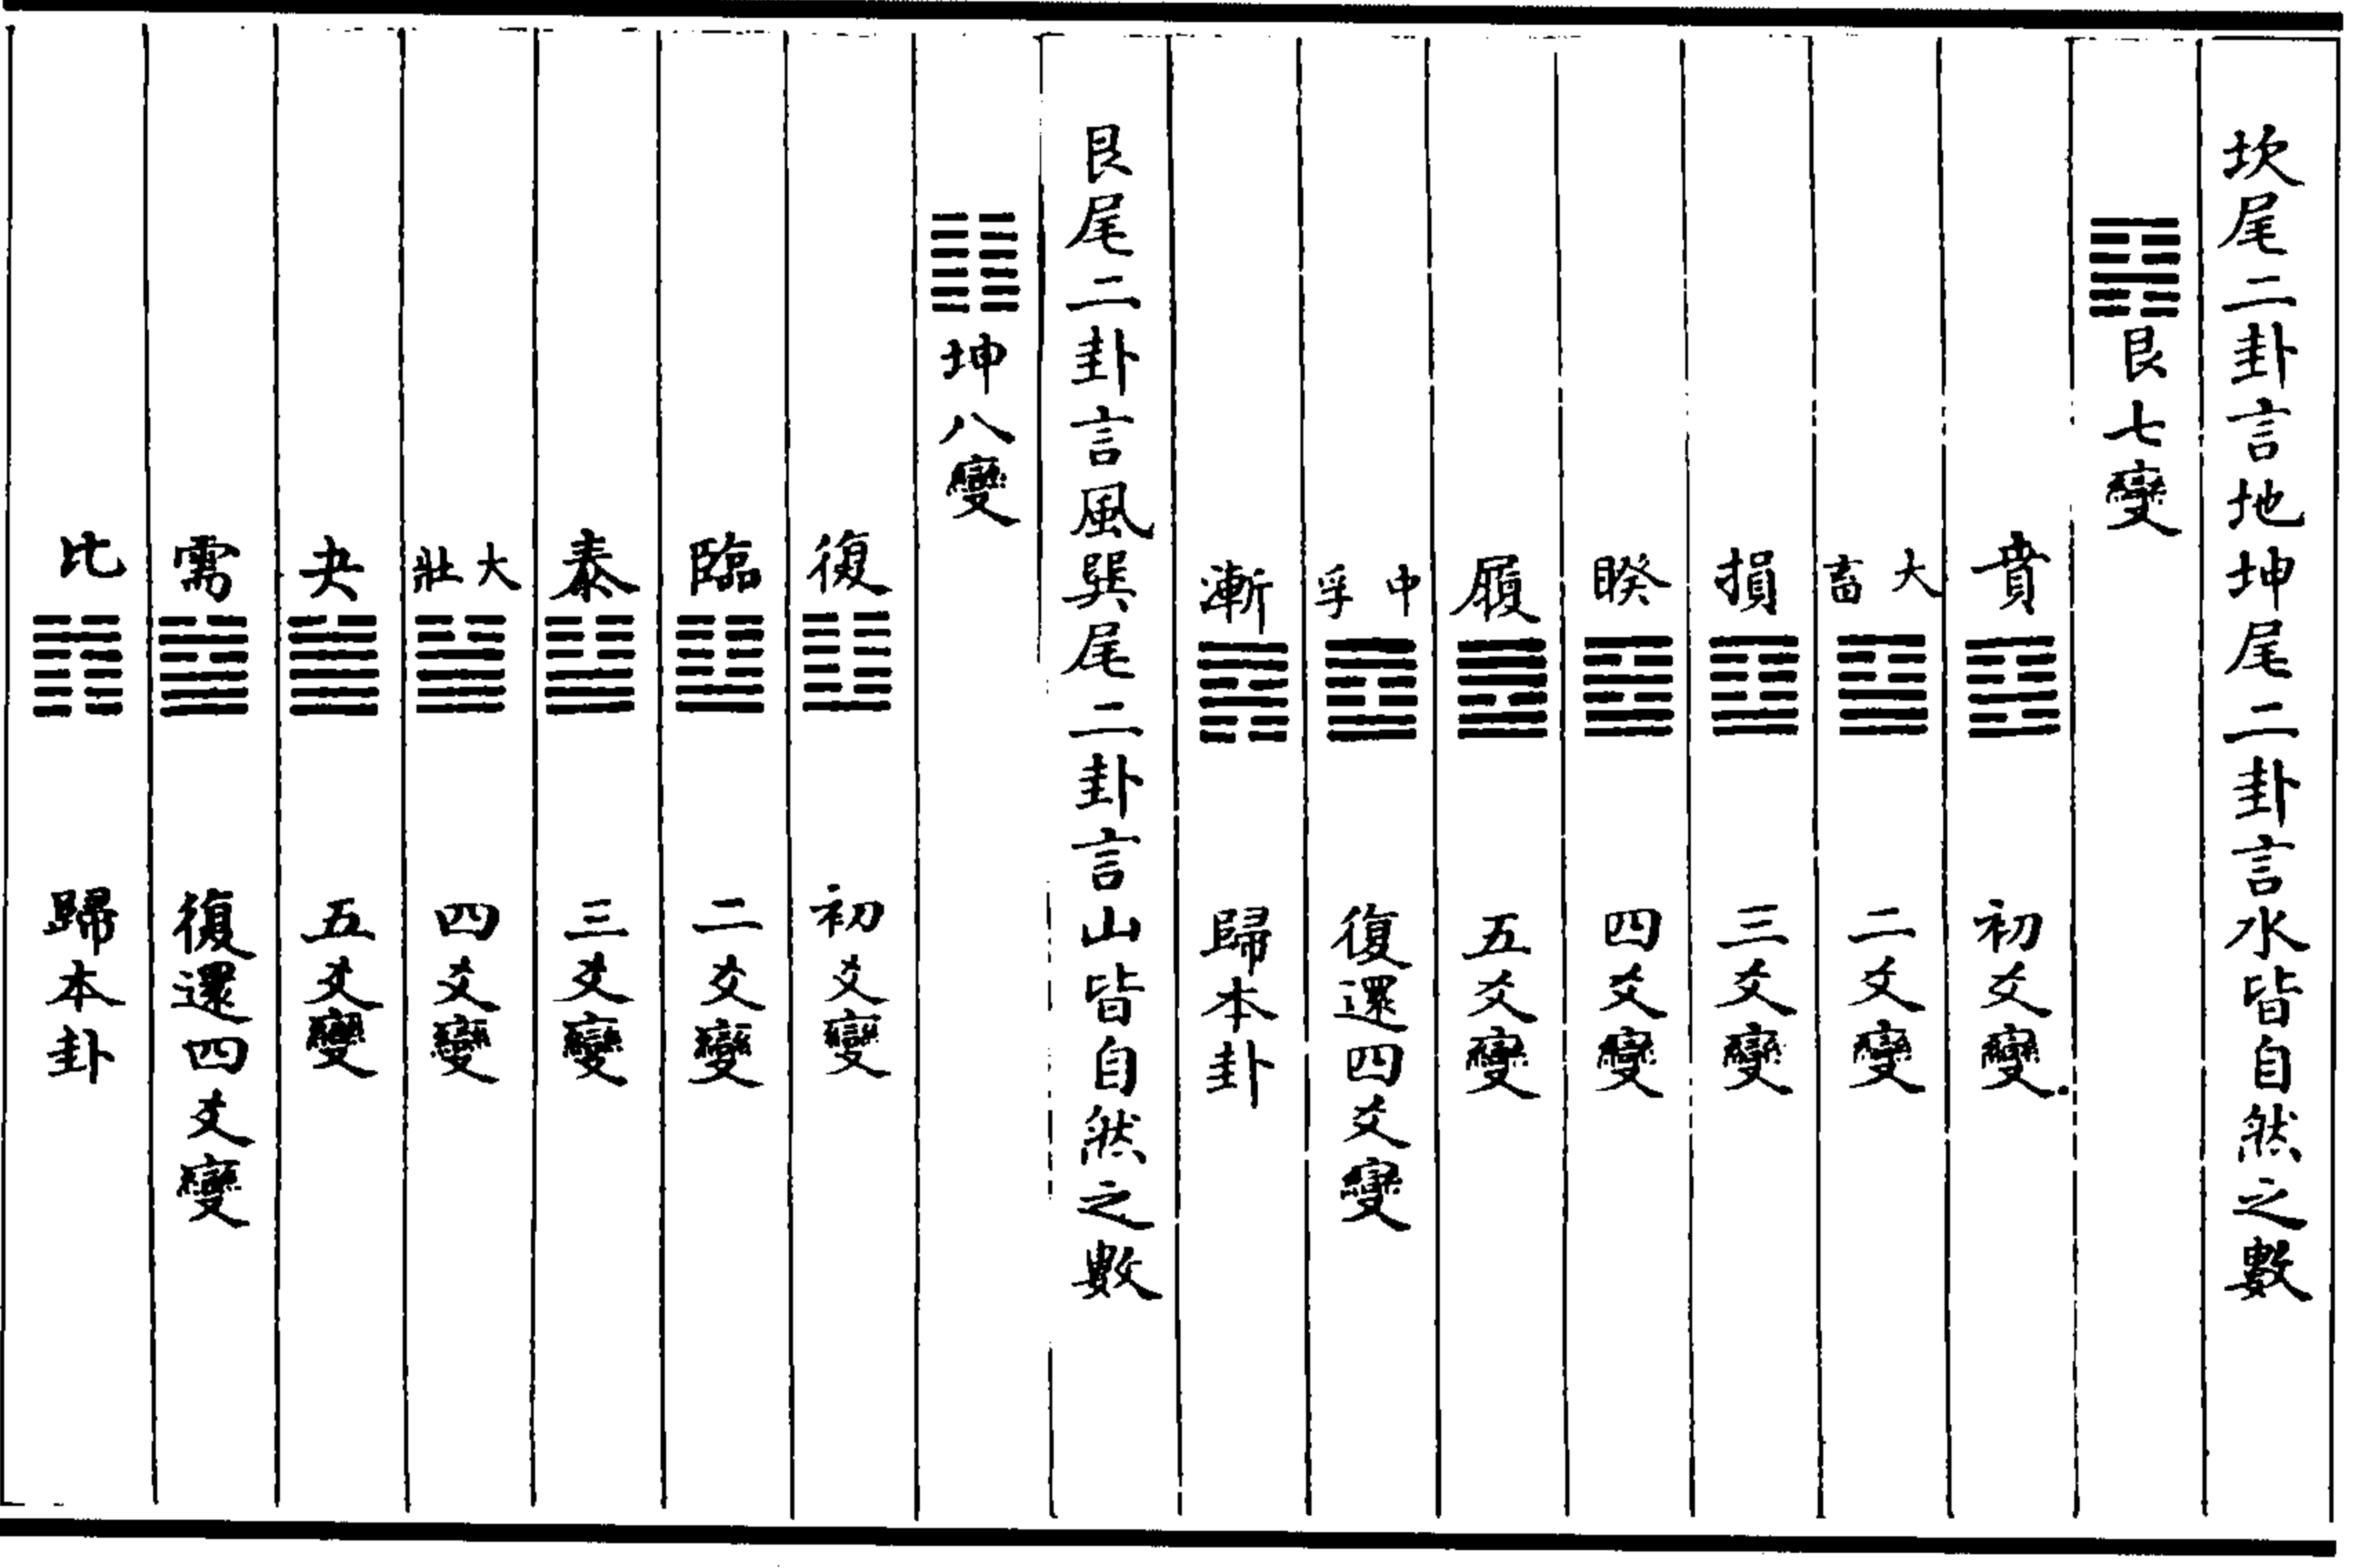 坎尾二卦言地坤尾二卦言水皆自然之數
䷳艮七變
賁䷕初爻變
大畜䷙二爻變
損䷨三爻變
睽䷥四爻變
履䷉五爻變
中孚䷼復還四爻變
漸䷴歸本卦
艮尾二卦言風巽尾二卦言山皆自然之數
䷁坤八變
復䷗初爻變
臨䷒二爻變
泰䷊三爻變
大壯䷡四爻變
夬䷪五爻變
需䷄復還四爻變
比䷇歸本卦